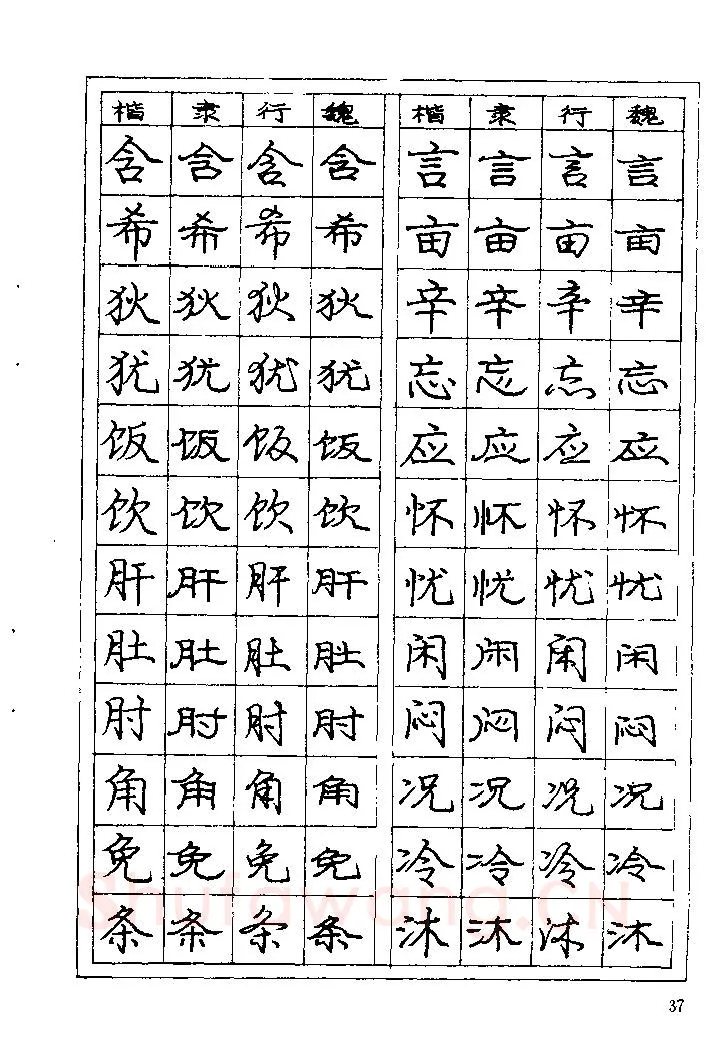 楷 隶 行 魏 楷 隶 行 魏
含 含 含 含 言 言 言 言
希 希 希 希 亩 亩 亩 亩
狄 狄 狄 狄 辛 辛 辛 辛
犹 犹 犹 犹 忘 忘 忘 忘
饭 饭 饭 饭 应 应 应 应
饮 饮 饮 饮 怀 怀 怀 怀
肝 肝 肝 肝 忧 忧 忧 忧
肚 肚 肚 肚 闲 闲 闲 闲
肘 肘 肘 肘 闷 闷 闷 闷
角 角 角 角 况 况 况 况
免 免 免 免 冷 冷 冷 冷
条 条 条 条 沐 沐 沐 沐
Shufawang.CN
37